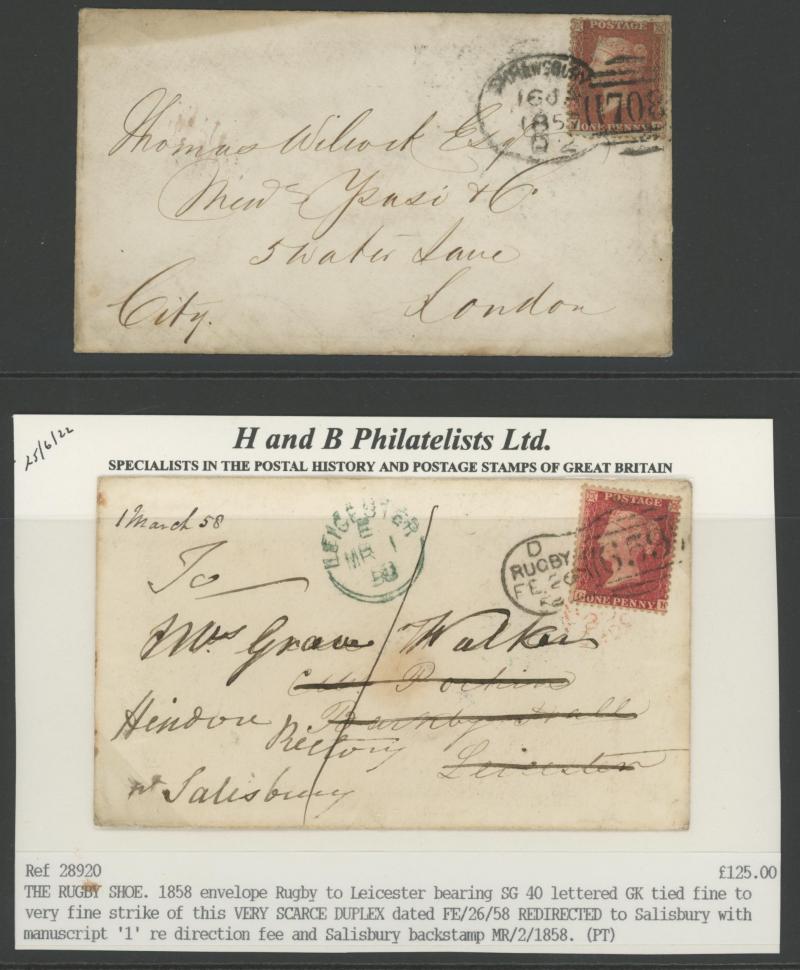 POSTAGE
SHREWSBURY
1857
708
ONE PENNY
Thomas Wilcock Esq
5 Water Lane
City. London
25/6/22
H and B Philatelists Ltd.
SPECIALISTS IN THE POSTAL HISTORY AND POSTAGE STAMPS OF GREAT BRITAIN
1 March 58
LEICESTER
E
MR 1
58
POSTAGE
D
RUGBY
FE 26
659
G ONE PENNY K
To
Mrs Grove Walker
Hindon Barkby Hall
Rectory
Leicester
nr Salisbury
Ref 28920 £125.00
THE RUGBY SHOE. 1858 envelope Rugby to Leicester bearing SG 40 lettered GK tied fine to
very fine strike of this VERY SCARCE DUPLEX dated FE/26/58 REDIRECTED to Salisbury with
manuscript '1' re direction fee and Salisbury backstamp MR/2/1858. (PT)